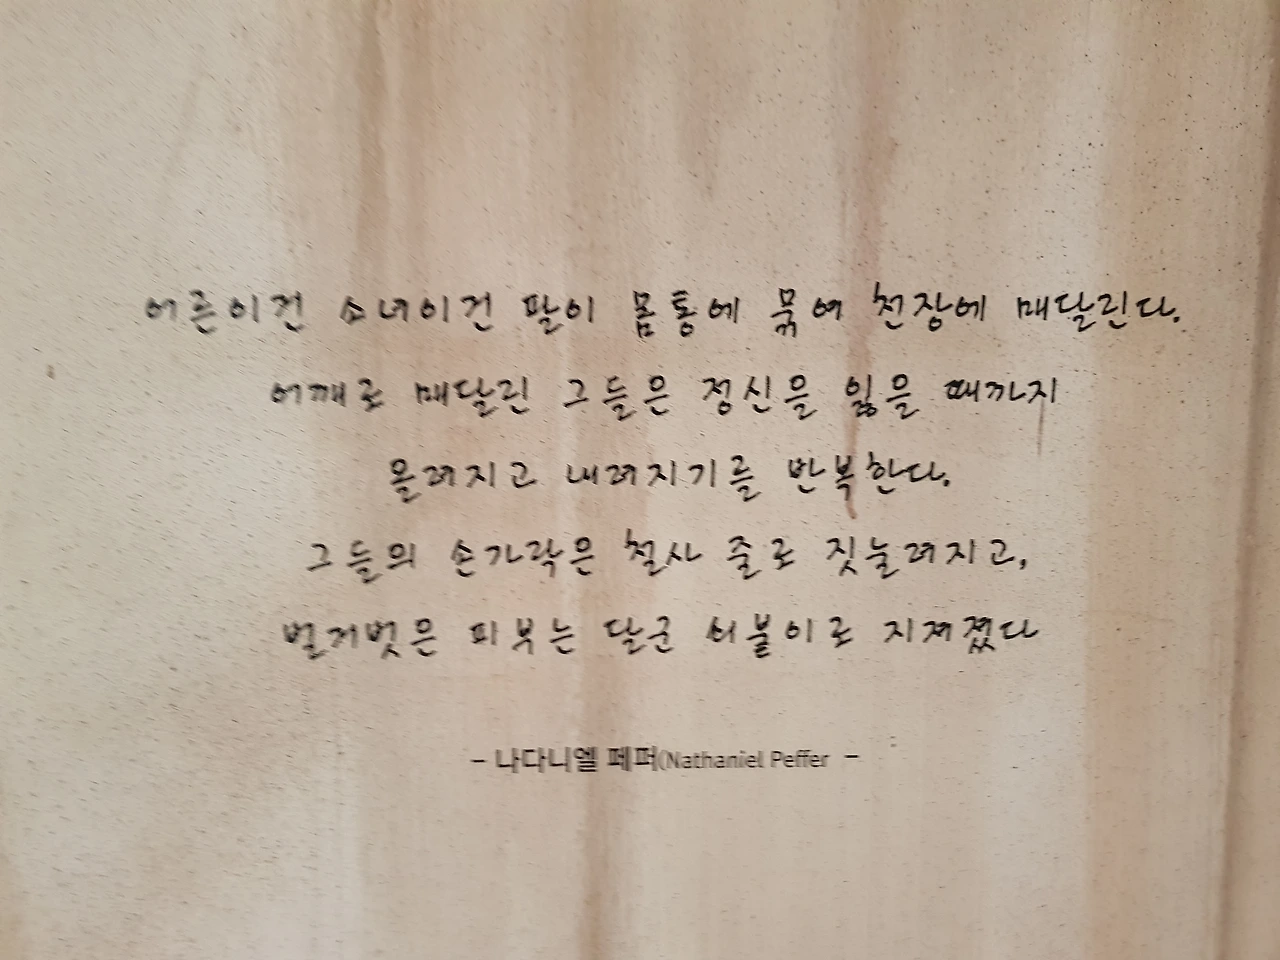 어른이건 소녀이건 팔이 몸통에 묶여 천장에 매달린다.
어깨로 매달린 그들은 정신을 잃을 때까지
올려지고 내려지기를 반복한다.
그들의 손가락은 철사 줄로 짓눌려지고,
벌거벗은 피부는 달군 쇠붙이로 지져졌다
– 나다니엘 페퍼(Nathaniel Peffer –